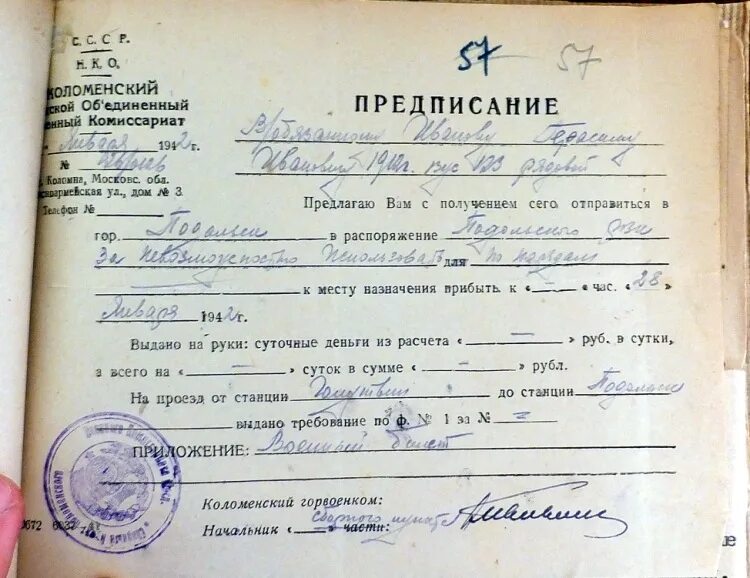 57 57
С.С.С.Р.
Н.К.О.
КОЛОМЕНСКИЙ
ской Об'единенный
нный Комиссариат
Января 1942 г.
№
Коломна, Московс. обл.
армейская ул., дом № 3.
Телефон №
ПРЕДПИСАНИЕ
В/обязанному Иванову Герасиму
Ивановичу 1912г. вус 123 рядовой
Предлагаю Вам с получением сего отправиться в
гор. Подольск в распоряжение Подольского
За невозможностью использовать для по нарядам
к месту назначения прибыть к «—» час. «28»
Января 1942г.
Выдано на руки: суточные деньги из расчета «—» руб. в сутки,
а всего на «—» суток в сумме «—» рубл.
На проезд от станции Голутвин до станции Подольск
выдано требование по ф. № 1 за № —
ПРИЛОЖЕНИЕ: Военный билет
Коломенский горвоенком:
Начальник «—» части: сборного пункта